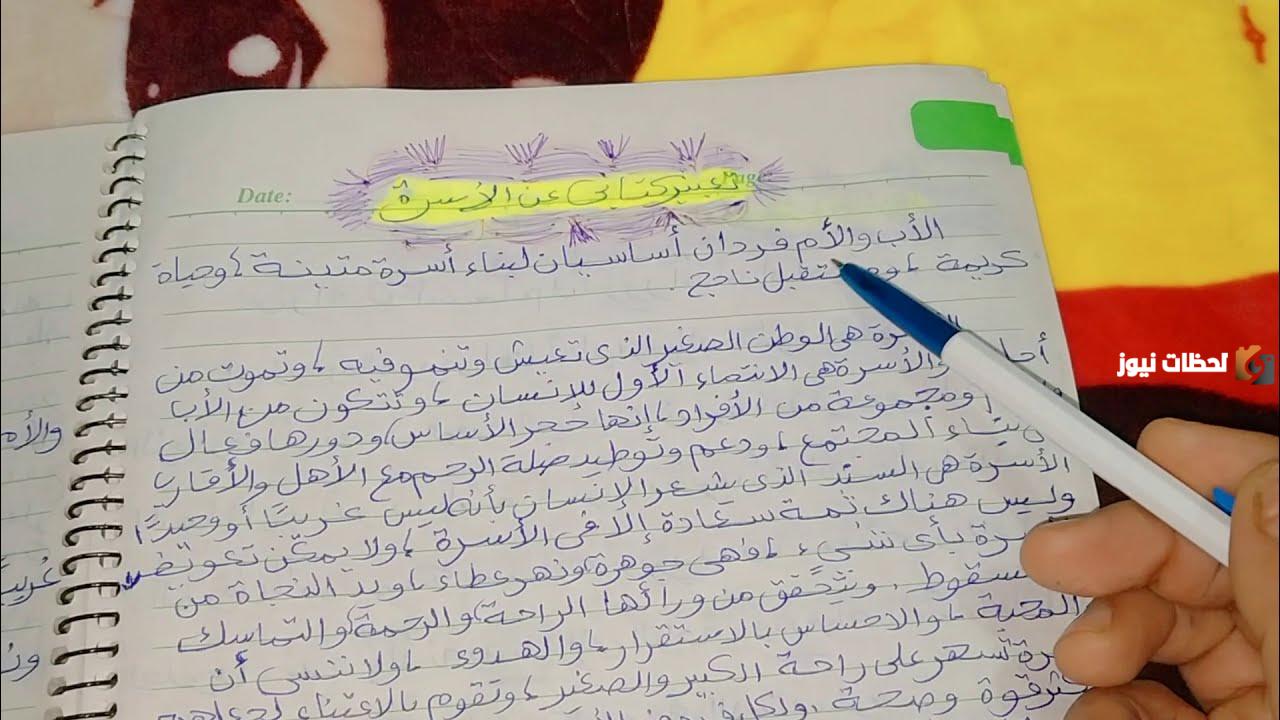 Date:
تعبير كتابى عن الأسرة
الأب والأم فردان أساسيان لبناء أسرة متينة، وحياة
كريمة، تقبل ناجح.
هى الوطن الصغير الذى تعيش وتنمو فيه، وتموت من
والأسرة هى الانتماء الأول للإنسان، وتتكون من الأب
ومجموعة من الأفراد، إنها حجر الأساس، ودورها فعال
بناء المجتمع، ودعم وتوطيد صلة الرحم مع الأهل والأقارب
الأسرة هى السند الذى شعر الإنسان بأنه ليس غريبًا أو وحيدًا،
وليس هناك ثمة سعادة إلا فى الأسرة، ولا يمكن تعويض
بأى شىء، فهى جوهرة، ونهر عطاء، ويد النجاة من
السقوط. ويتحقق من ورائها الراحة، والرحمة، والتماسك
المحبة، والاحساس بالاستقرار، والهدوء، ولا ننسى أن
تسهر على راحة الكبير والصغير، وتقوم بالاعتناء
قوة وصحة،
والأم
غريبًا
لحظات نيوز